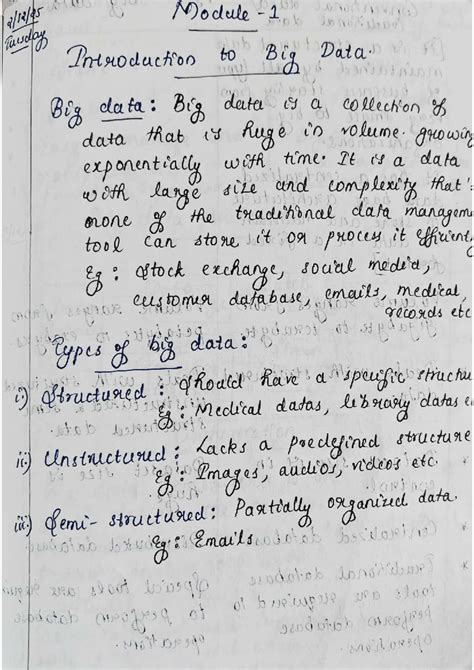 2/12/25
Tuesday
Module - 1
Introduction to Big Data.
Big data : Big data is a collection of
data that is huge in volume. growing
exponentially with time. It is a data
with large size and complexity that
none of the traditional data manageme
tool can store it or process it efficiently
Eg : Stock exchange, social media,
customer database, emails, medical,
records etc
Types of big data :
i) Structured : Should have a specific structure
Eg : Medical datas, library datas e
ii) Unstructured : Lacks a predefined structure
Eg : Images, audios, videos etc.
iii) Semi-structured : Partially organized data.
Eg : Emails